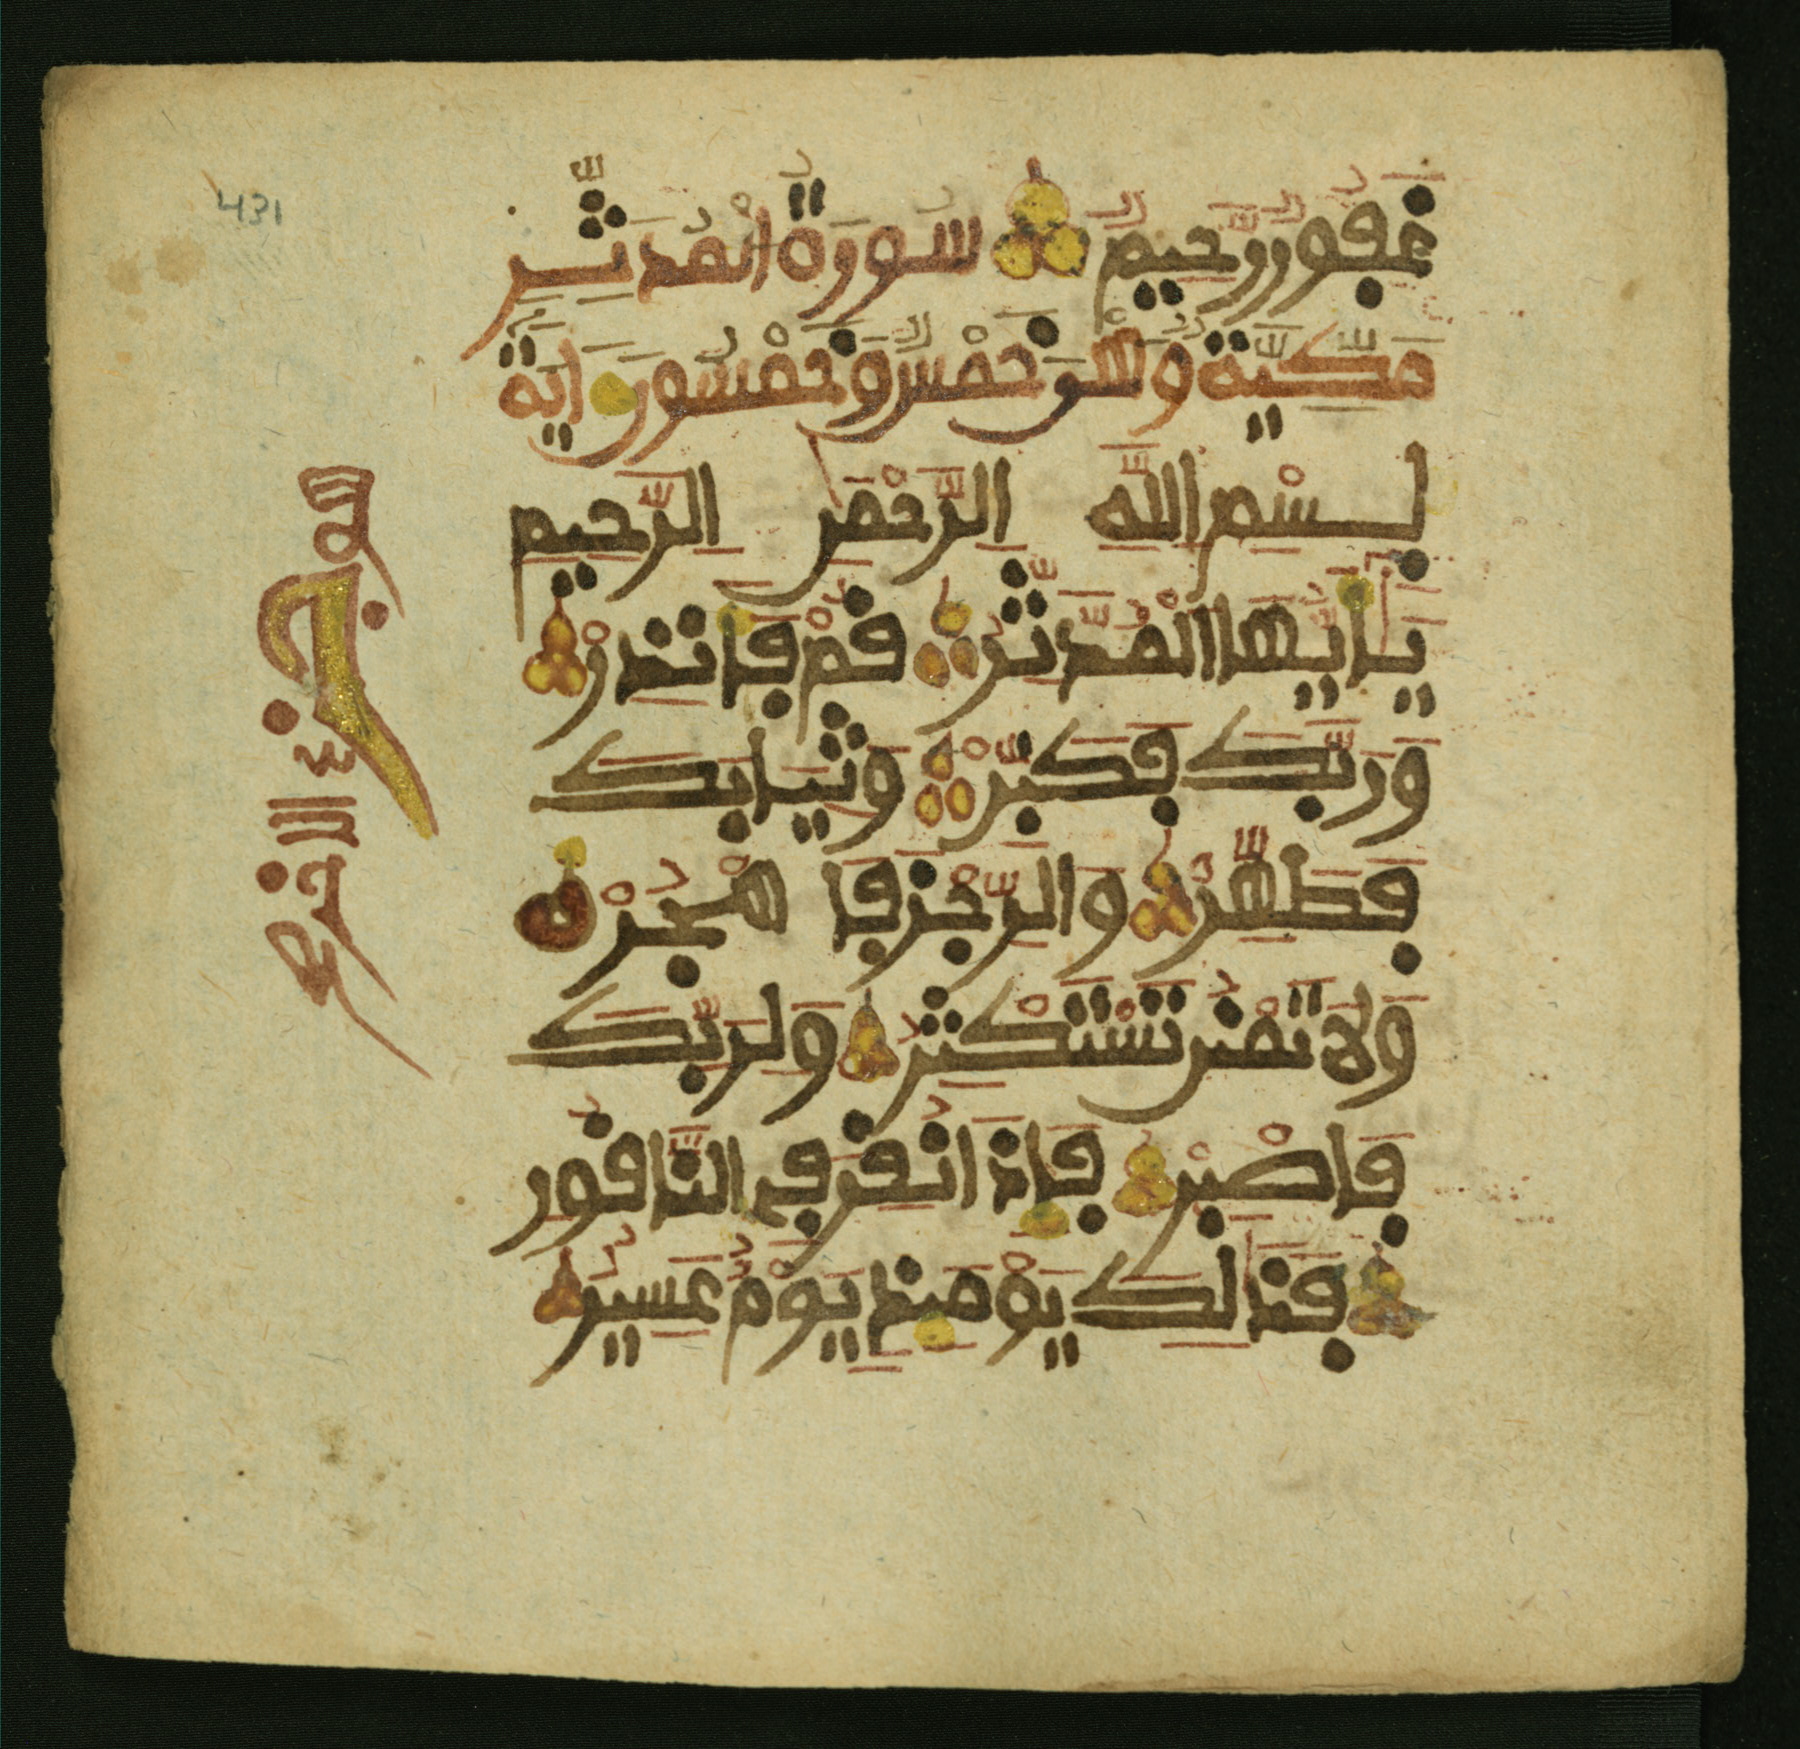 431
غَفُورٌ رَّحِيمٌ سُورَةُ الْمُدَّثِّرِ
مَكِّيَّةٌ وَهِيَ خَمْسٌ وَخَمْسُونَ ايَةً
بِسْمِ اللَّهِ الرَّحْمَنِ الرَّحِيمِ
يَأَيُّهَا الْمُدَّثِّرُ قُمْ فَانذِرْ
وَرَبَّكَ فَكَبِّرْ وَثِيَابَكَ
فَطَهِّرْ وَالرِّجْزَ فَاهْجُرْ
وَلَا تَمْنُن تَسْتَكْثِرُ وَلِرَبِّكَ
فَاصْبِرْ فَإِذَا نُقِرَ فِي النَّاقُورِ
فَذَلِكَ يَوْمَئِذٍ يَوْمٌ عَسِيرٌ